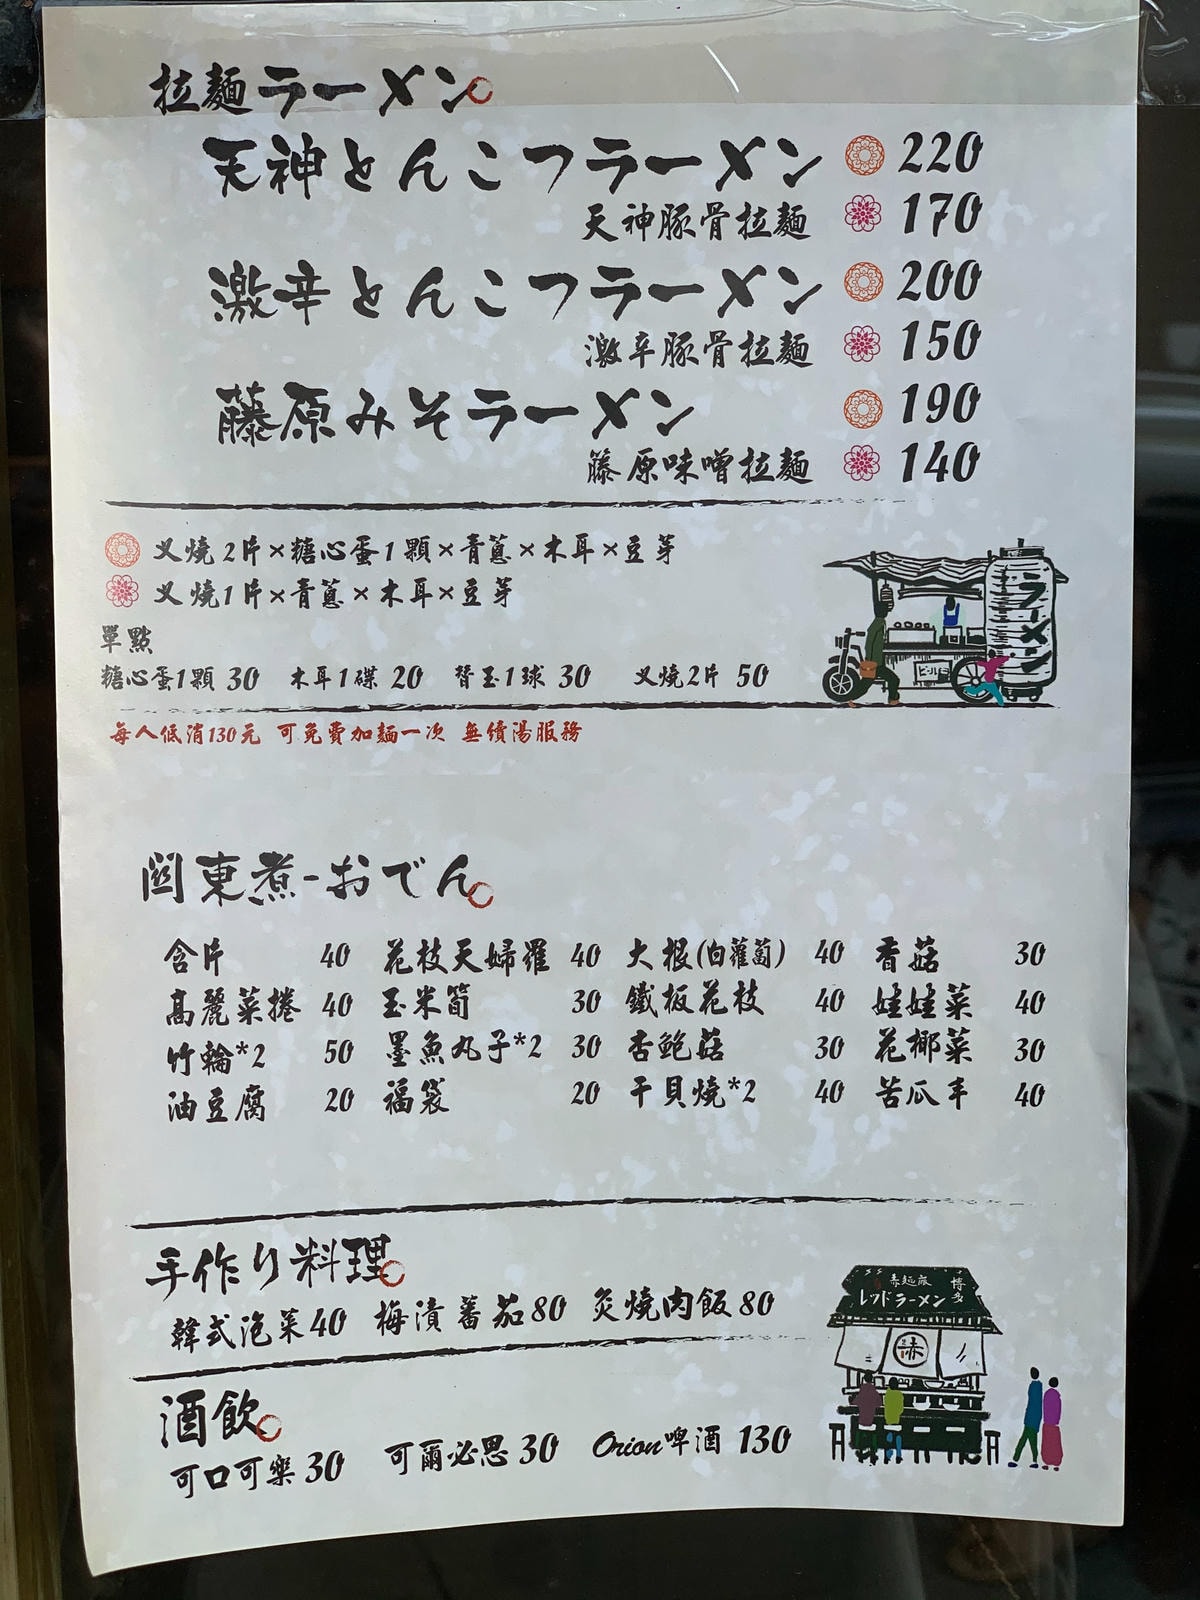 拉麵ラーメン
天神とんこつラーメン 220
天神豚骨拉麵 170
激辛とんこつラーメン 200
激辛豚骨拉麵 150
藤原みそラーメン 190
籐原味噌拉麵 140
叉燒2片×糖心蛋1顆×青蔥×木耳×豆芽
叉燒1片×青蔥×木耳×豆芽
單點
糖心蛋1顆 30 木耳1碟 20 替玉1球 30 叉燒2片 50
ラーメン
ビール
每人低消130元 可免費加麵一次 無續湯服務
關東煮-おでん
含片 40 花枝天婦羅 40 大根(白蘿蔔) 40 香菇 30
高麗菜捲 40 玉米筍 30 鐵板花枝 40 娃娃菜 40
竹輪*2 50 墨魚丸子*2 30 杏鮑菇 30 花椰菜 30
油豆腐 20 福袋 20 干貝燒*2 40 苦瓜丰 40
手作り料理
韓式泡菜40 梅漬蕃茄80 炙燒肉飯80
赤麵廠 博多
レッドラーメン
赤
酒飲
可口可樂30 可爾必思30 Orion啤酒 130